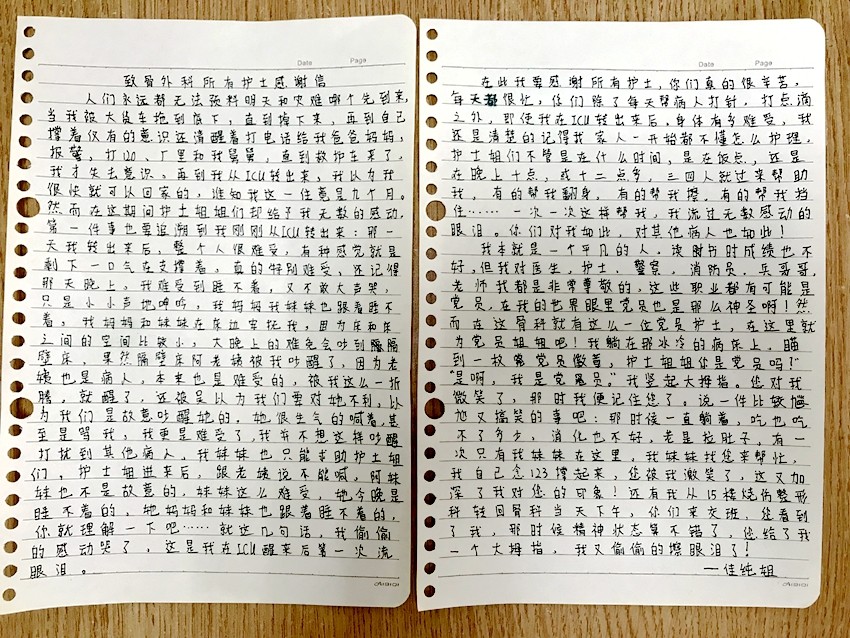 Date Page
致骨外科所有护士感谢信
人们永远都无法预料明天和灾难哪个先到来,
当我被大货车拖到底下,直到停下来,再到自己
撑着仅有的意识还清醒着打电话给我爸爸妈妈,
报警,打120、厂里和我舅舅,直到救护车来了,
我才失去意识,再到我从ICU转出来,我以为我
很快就可以回家的,谁知我这一住竟是九个月。
然而在这期间护士姐姐们却给了我无数的感动,
第一件事也要追溯到我刚刚从ICU转出来:那一
天我转出来后,整个人很难受,有种感觉就是
剩下一口气在支撑着,真的特别难受、还记得
那天晚上,我难受到睡不着,又不敢大声哭,
只是小小声地呻吟,我妈妈我妹妹也跟着睡不
着,我妈妈和妹妹在床边安抚我,因为床和床
之间的空间比较小,大晚上的难免会吵到隔
壁床,果然隔壁床阿老姨被我吵醒了,因为老
姨也是病人,本来也是难受的,被我这么一折
腾,就醒了,还被误以为我们要对她不利,以
为我们是故意吵醒她的,她很生气的喊着,甚
至是骂我,我更是难受了,我并不想这样吵醒
打扰到其他病人,我妹妹也只能求助护士姐
们,护士姐进来后,跟老姨说不能喊,阿妹
妹也不是故意的,妹妹这么难受,她今晚是
睡不着的,她妈妈和妹妹也跟着睡不着的,
你就理解一下吧……就这几句话,我偷偷
的感动哭了,这是我在ICU醒来后第一次流
眼泪。
Date Page
在此我要感谢所有护士,你们真的很辛苦,
每天都很忙,你们除了每天帮病人打针,打点滴
之外,即使我在ICU转出来后,身体有多难受,我
还是清楚的记得我家人一开始都不懂怎么护理,
护士姐们不管是在什么时间,是在饭点,还是
在晚上十点,或十二点多,三四人就过来帮助
我,有的帮我翻身,有的帮我擦,有的帮我挡
住……一次一次这样帮我,我流过无数感动的
眼泪。你们对我如此,对其他病人也如此!
我本就是一个平凡的人。读书时成绩也不
好,但我对医生,护士,警察,消防员,兵哥哥,
老师我都是非常尊敬的,这些职业都有可能是
党员,在我的世界眼里党员也是那么神圣啊!然
而在这骨科就有这么一位党员护士,在这里就
为党员姐姐吧!我躺在那冰冷的病床上,瞄
到一枚党员徽着,护士姐姐你是党员吗?"
"是啊,我是党员。"我竖起大拇指。您对我
微笑了,那时我便记住您了。说一件比较尴
尬又搞笑的事吧:那时候一直躺着,吃也吃
不了多少,消化也不好,老是拉肚子,有一
次只有我妹妹在这里,我妹妹找您来帮忙,
我自己念123撑起来,您被我激笑了,这又加
深了我对您的印象!还有我从15楼烧伤整形
科转回骨科当天下午,你们来交班,您看到
了我,那时候精神状态算不错了,您给了我
一个大拇指,我又偷偷的擦眼泪了!
—佳纯姐